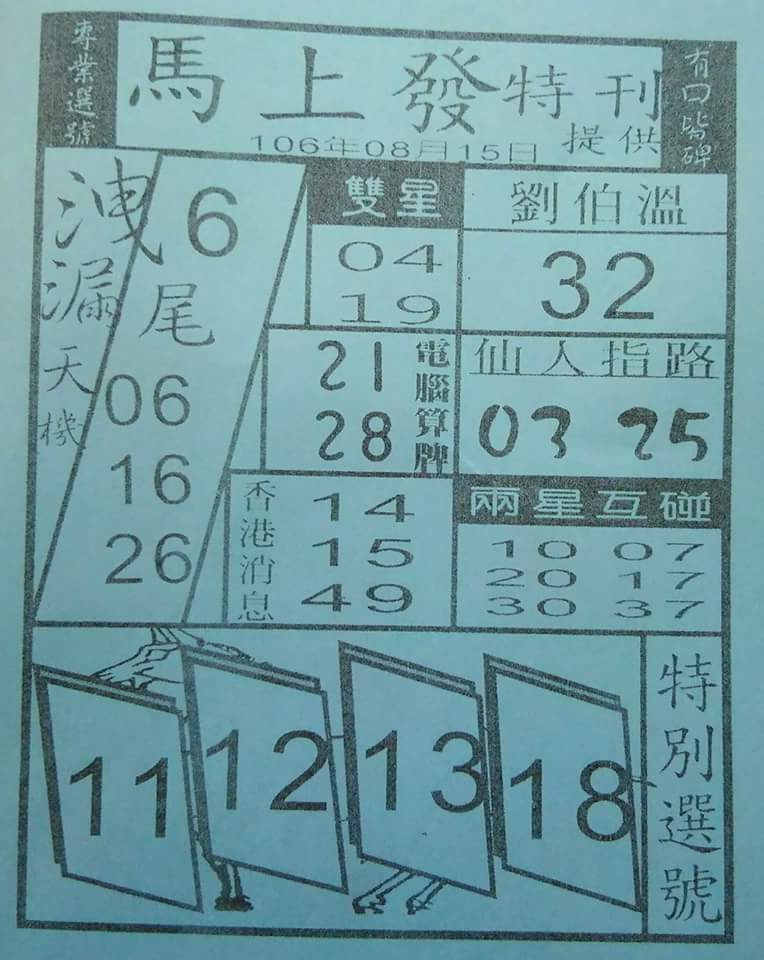 專業選號
馬上發特刊
106年08月15日 提供
有口皆碑
洩漏天機
6
尾
06
16
26
雙星
04
19
劉伯溫
32
21
28
電腦算牌
仙人指路
03 25
香港消息
14
15
49
兩星互碰
10 07
20 17
30 37
11 12 13 18
特別選號